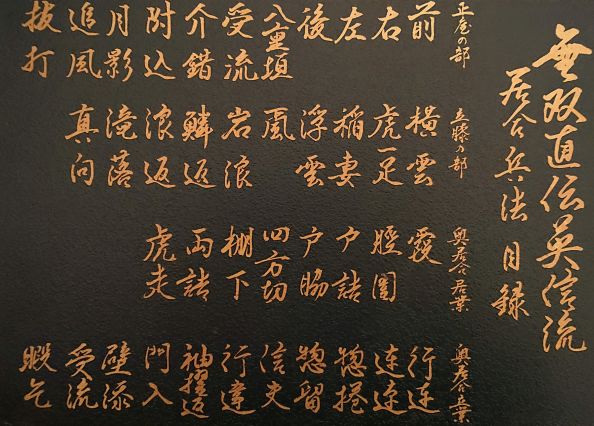 無双直伝英信流
居合兵法 目録
正座の部
前
右
左
後
八重垣
受流
介錯
附込
月影
追風
抜打
立膝の部
横雲
虎一足
稲妻
浮雲
颪
岩浪
鱗返
浪返
滝落
真向
奥居合居業
霞
脛囲
戸詰
戸脇
四方切
棚下
両詰
虎走
奥居合立業
行連
連達
惣捲
惣留
信夫
行違
袖摺返
門入
壁添
受流
暇乞